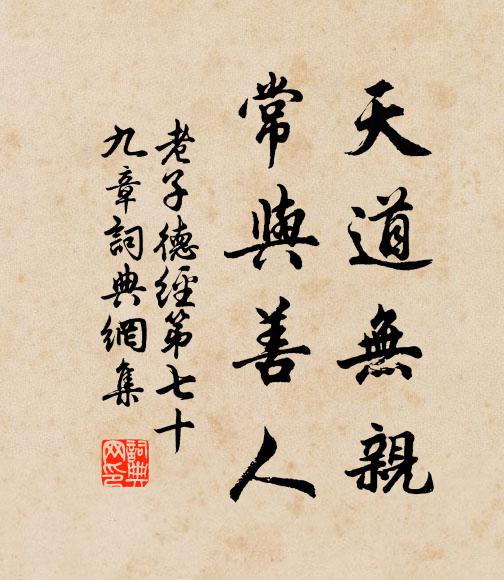 天道無親
常與善人
老子德經第七十
九章詞典網集
詞典
网印